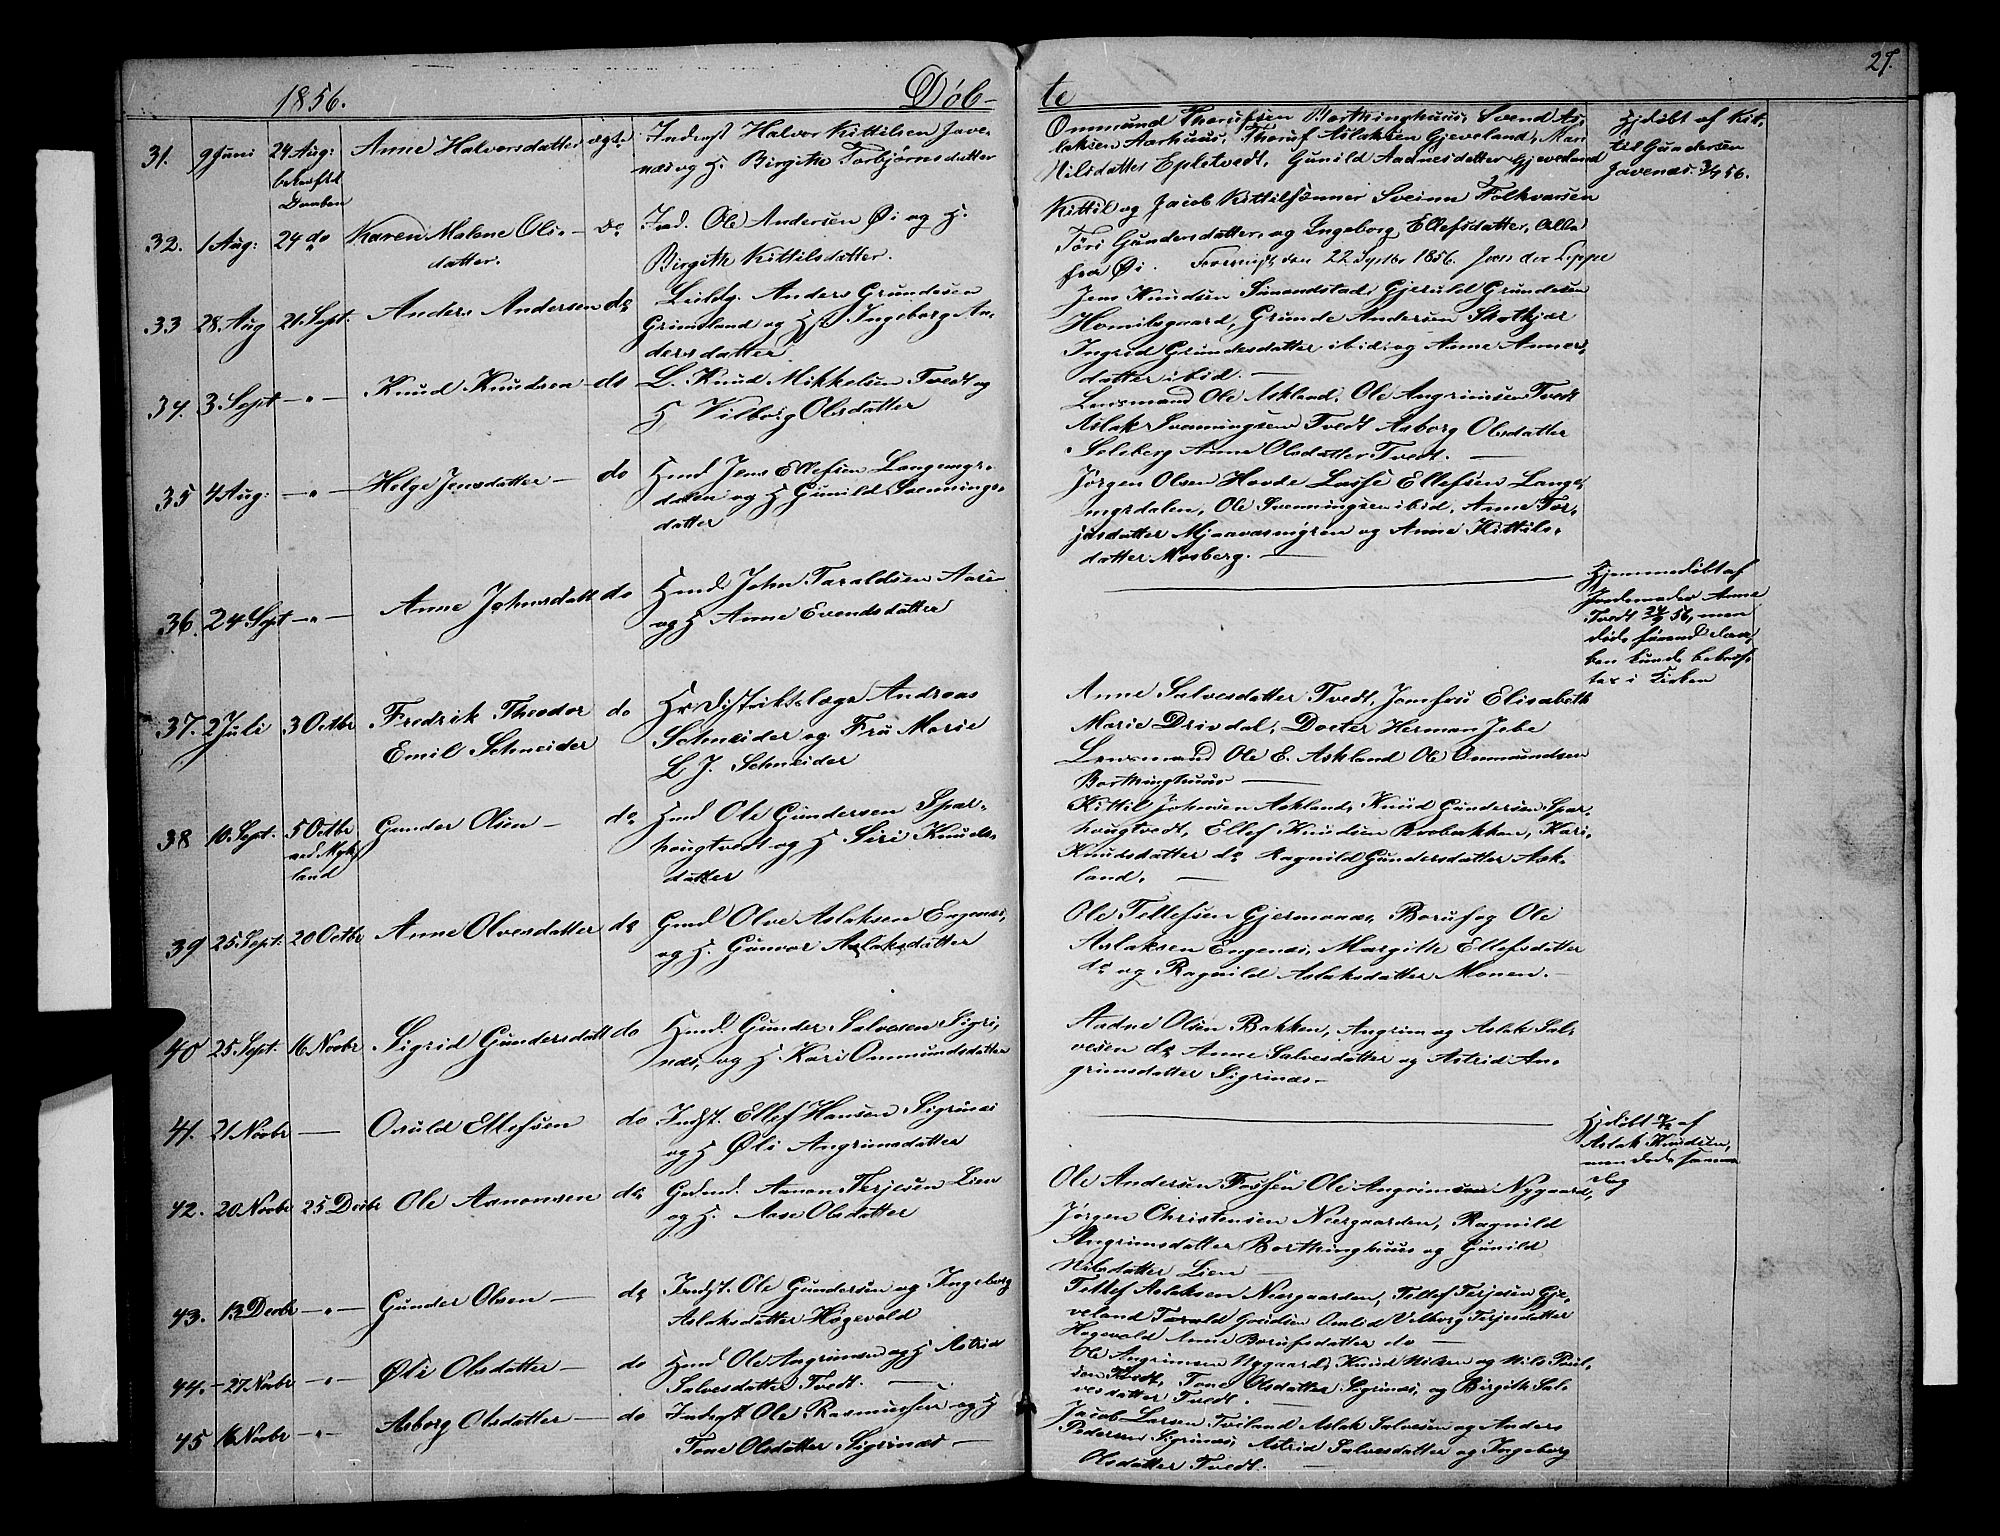 1856.
Døb-
te
27.
31. 9 Juni 24 Aug: Anne Halvorsdatter ægte. Indrgst Halvor Kittilsen Jave-
bekræftet
Daaben
næs og H. Birgith Torbjørnsdatter
Ommund Thorufsen Borthinghuus, Svend As-
laksen Aarhuus, Thoruf Aslaksen Gjeveland, Mari
Nilsdatter Epletvedt, Gunild Aadnesdatter Gjeveland
Hjdøbt af Kit-
til Gundersen
Javenæs 3/7 56.
32. 1 Aug: 24 do Karen Malene Ols- do Ind. Ole Andersen Øi og H.
datter. Birgith Kittilsdatter.
Kittil og Jacob Kittilsønner Sveinn Folkvarsen
Tøri Gundersdatter, og Ingeborg Ellefsdatter, Alle
fra Øi. den 22 Septbr 1856.
33 28. Aug 21. Sept. Anders Andersen do Leildg. Anders Grundesen
Grimsland og H. Ingeborg An-
dersdatter.
Jens Knudsen Simonstad, Gjeruld Grundesen
Homilsgaard, Grunde Andersen
Ingrid Grundesdatter ibid. og Anne Anners-
datter ibid. —
34. 3 Sept —"— Knud Knudsen do L. Knud Mikkelsen Tvedt og
H Vilborg Olsdatter
Lensmand Ole Askland, Ole Angrimsen Tvedt
Aslak Svenningsen Tvedt Asborg Olsdatter
Seleberg Anne Olsdatter Tvedt. —
35 4 Aug: —"— Helge Jensdatter — do Hmd Jens Ellefsen Langings-
dalen og H Gunild Svennings-
datter
Jørgen Olsen Hovde Lasse Ellefsen Lang-
ingsdalen, Ole Svenningsen ibid, Anne Ter-
jesdatter Mjaavasmigren og Anne Kittils-
datter Mosberg. —
36. 24 Sept —"— Anne Johnsdatt do Hmd John Taraldsen Aasen
og H Anne Evendsdatter
Hjemmedøbt af
Jordemoder Anne
Tvedt 24/9 56, men
døde førend Daa-
ben kunde bekræf-
tes i Kirken
37. 2 Juli 3 Octbr Fredrik Theodor do Hr Distriktslæge Andreas
Emil Schneider Schneider og Fru Marie
L J. Schneider
Anne Salvesdatter Tvedt, Jomfru Elisabeth
Marie Drivdal, Docter Herman Jebe
Lensmand Ole E. Askland Ole Ommundsen
Borthinghuus —
38 10. Sept. 5 Octbr Gunder Olsen — do Hmd Ole Gundersen Spar-
ved Myk-
land
hougtvedt og H Siri Knuds-
datter
Kittil Johnsen Askland, Knud Gundersen Spar-
hougtvedt, Ellef Knudsen Roobakken, Kari
Knudsdatter do Ragnild Gundersdatter Ask-
land. —
39 25. Sept. 20 Octbr Anne Olvesdatter do Gmd Olve Aslaksen Engenæs,
og H. Gunvor Aslaksdatter
Ole Tellefsen Gjermonæs, Boruf og Ole
Aslaksen Engenæs, Margith Ellefsdatter
do og Ragnild Aslaksdatter Monen. —
40 25 Sept. 16 Novbr Sigrid Gundersdatt do Hmd. Gunder Salvesen Sigri-
næs, og H. Kari Ommundsdatter
Aadne Olsen Bakken, Angrim og Aslak Sal-
vesen do Anne Salvesdatter og Astrid An-
grimsdatter Sigrinæs —
41. 21 Novbr — Osuld Ellefsen do Indst. Ellef Hansen Sigrinæs
og H Øli Angrimsdatter
Hjdøbt af
Aslak Knudsen,
men døde samme
Dag
42. 20 Novbr 25 Decbr Ole Aanonsen do Gadmd. Aanon Terjesen Lien
og H. Aase Olsdatter
Ole Andersen Fossen Ole Angrimsen Nygaard,
Jørgen Christensen Neergaarden, Ragnild
Angrimsdatter Borthinghuus og Gunild
Nilsdatter Lien —
43. 13 Decbr —"— Gunder Olsen — do Indst. Ole Gundersen og Ingeborg
Aslaksdatter Høgevold
Tellef Aslaksen Neergaarden, Tellef Terjesen Gje-
veland Tarald Osulid Vilborg Terjesdatter
Høgevold Anne Borufsdatter do —
44. 27 Novbr —"— Øli Olsdatter — do Hmd Ole Angrimsen og H Astrid
Salvesdatter Tvedt. —
Ole Angrimsen Nygaard, Knud Nilsen og Nils Poul-
sen Tvedt, Tone Olsdatter Sigrinæs, og Birgith Sal-
vesdatter Tvedt. —
45 16 Novbr —"— Asborg Olsdatter — do Indrgst Ole Rasmussen og H
Tone Olsdatter Sigrinæs —
Jacob Larsen Tveiland Aslak Salvesen og Anders
Pedersen Sigrinæs, Astrid Salvesdatter og Ingeborg
Olsdatter Tvedt. —